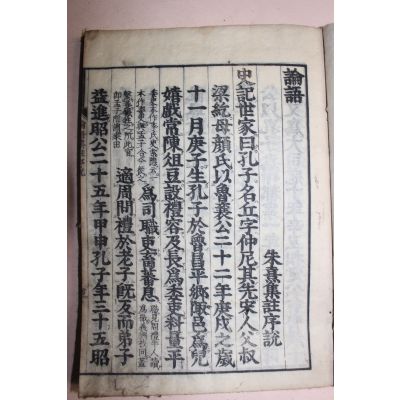 論語
朱熹集註序說
史記世家曰孔子名丘字仲尼其先宋人父叔
梁紇母顏氏以魯襄公二十二年庚戌之歲
十一月庚子生孔子於魯昌平鄉陬邑爲兒
嬉戲常陳俎豆設禮容及長爲委吏料量平
爲司職吏畜蕃息
適周問禮於老子旣反而弟子
益進昭公二十五年甲申孔子年三十五昭